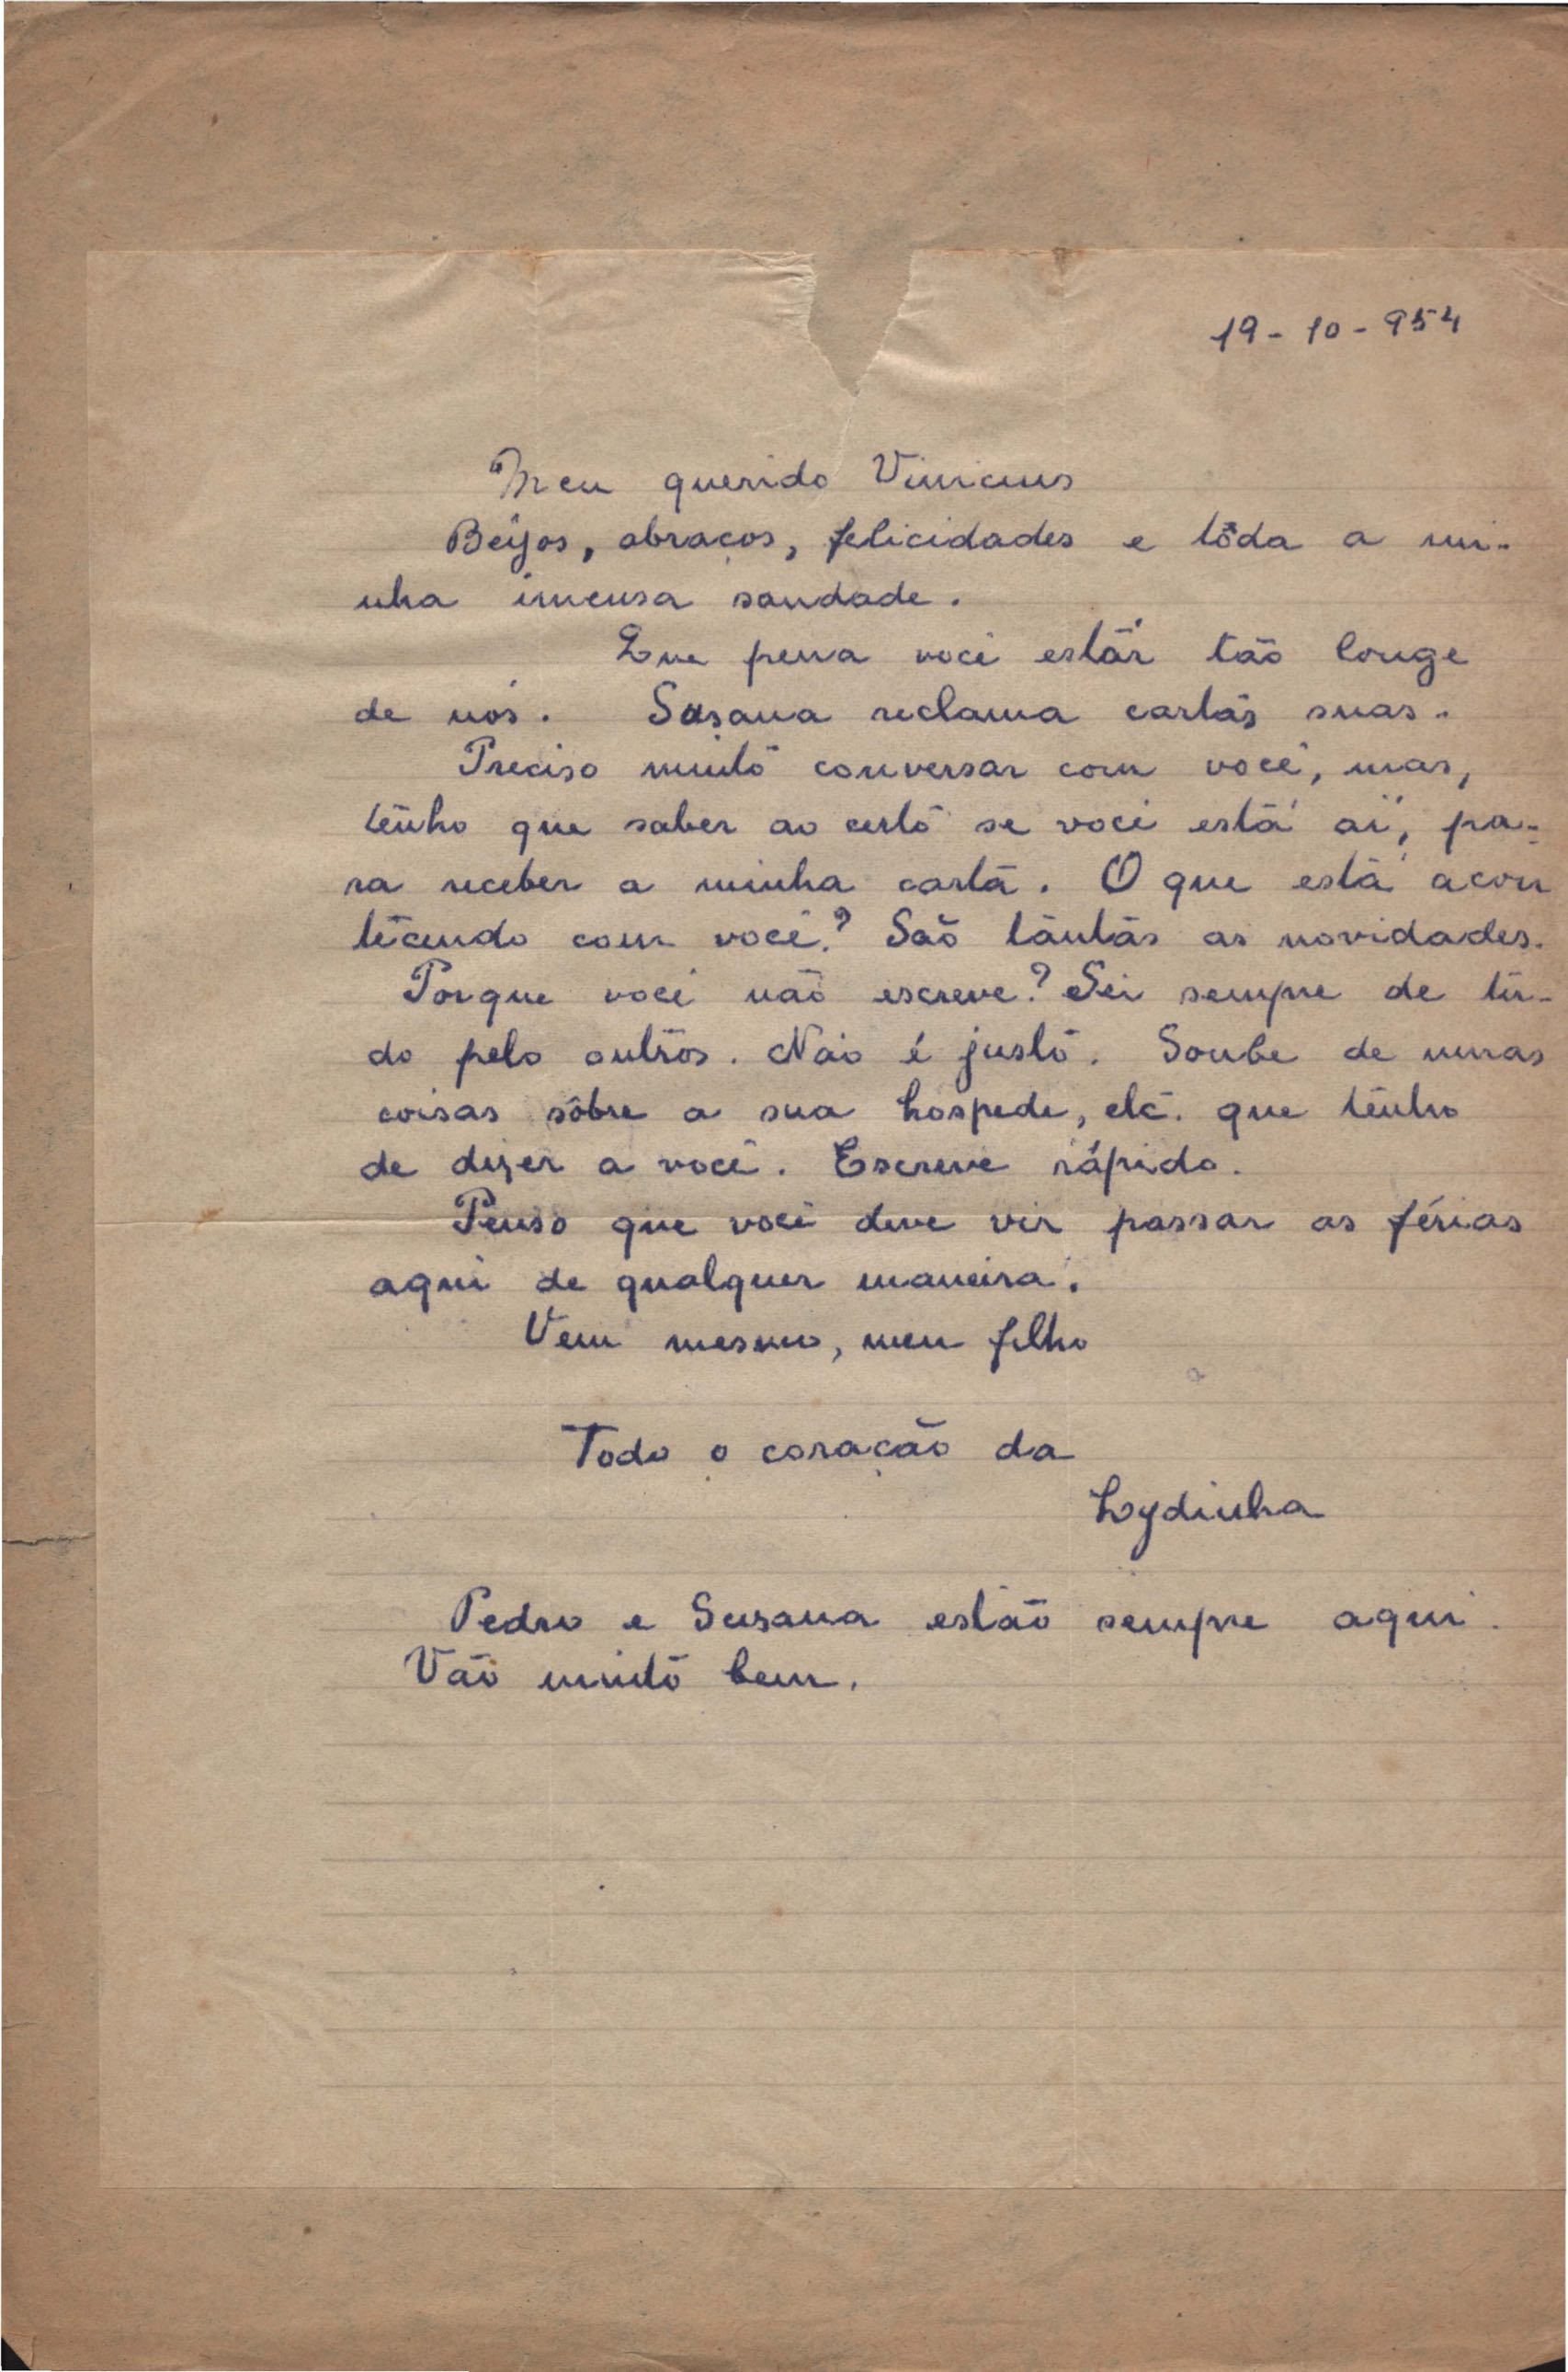 19-10-954
Meu querido Vinicius
Beijos, abraços, felicidades e tôda a mi-
nha imensa saudade.
Que pena você estár tão longe
de nós. Susana reclama cartas suas.
Preciso muito conversar com você, mas,
tenho que saber ao certo se você está aí, pa-
ra receber a minha carta. O que está acon
tecendo com você? São tantas as novidades.
Porque você não escreve? Sei sempre de tu-
do pelo outros. Não é justo. Soube de umas
coisas sôbre a sua hospede, etc. que tenho
de dizer a você. Escreve rápido.
Penso que você deve vir passar as férias
aqui de qualquer maneira.
Vem mesmo, meu filho
Todo o coração da
Lydinha
Pedro e Susana estão sempre aqui.
Vão muito bem.